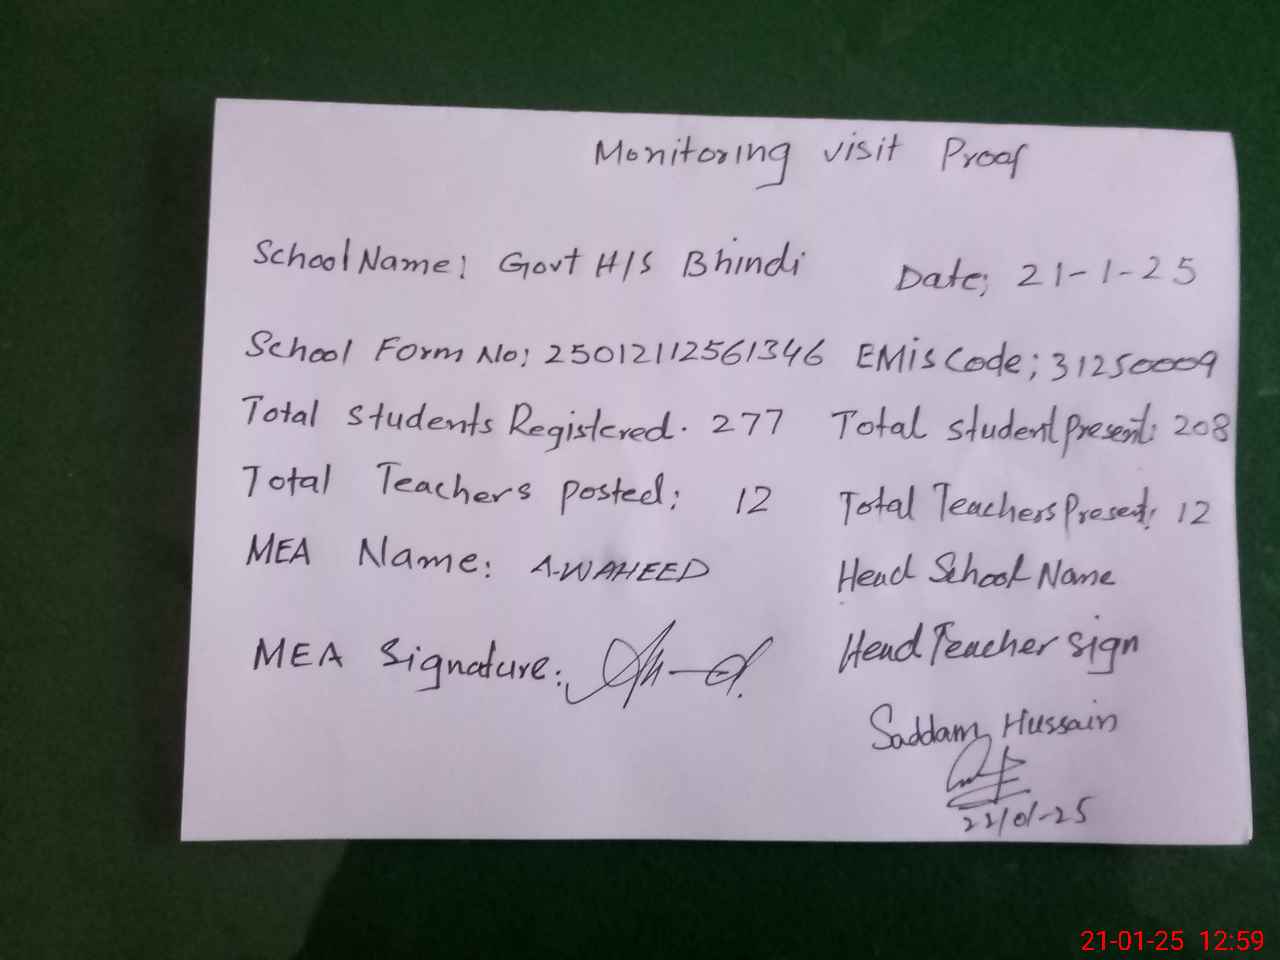 Monitoring visit Proof
School Name: Govt H/S Bhindi Date: 21-1-25
School Form No: 25012112561346 EMis Code: 31250009
Total students Registered. 277 Total student present: 208
Total Teachers posted: 12 Total Teachers Present: 12
MEA Name: A-WAHEED Head School Name
MEA Signature: Head Teacher sign
Saddam Hussain
22/01-25
21-01-25 12:59